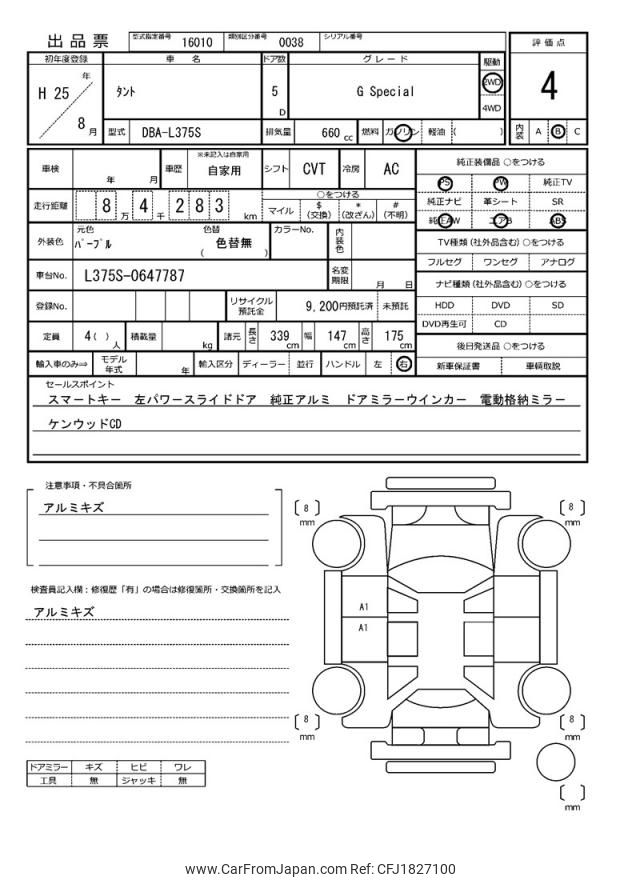 出品票
型式指定番号 16010 類別区分番号 0038 シリアル番号
評価点
4
内装 A B C
初年度登録 車名 ドア数 グレード 駆動
H 25 年 8 月
タント 5 D G Special 2WD 4WD
型式 DBA-L375S 排気量 660 cc 燃料 ガソリン 軽油 ( )
車検 年 月 車歴 ※未記入は自家用 自家用 シフト CVT 冷房 AC
走行距離 8 万 4 千 2 8 3 km
○をつける
マイル $(交換) *(改ざん) #(不明)
外装色 元色 パープル 色替 色替無 ( ) カラーNo. 内装色
車台No. L375S-0647787 名変期限 月 日
登録No. リサイクル預託金 9,200円預託済 未預託
定員 4( ) 人 積載量 kg 諸元 長さ 339 cm 幅 147 cm 高さ 175 cm
輸入車のみ⇒ モデル年式 年 輸入区分 ディーラー 並行 ハンドル 左 右
純正装備品 ○をつける
PS PW 純正TV
純正ナビ 革シート SR
純正AW エアB ABS
TV種類(社外品含む)○をつける
フルセグ ワンセグ アナログ
ナビ種類(社外品含む)○をつける
HDD DVD SD
DVD再生可 CD
後日発送品 ○をつける
新車保証書 車輌取説
セールスポイント
スマートキー 左パワースライドドア 純正アルミ ドアミラーウインカー 電動格納ミラー
ケンウッドCD
注意事項・不具合箇所
アルミキズ
検査員記入欄:修復歴「有」の場合は修復箇所・交換箇所を記入
アルミキズ
ドアミラー キズ ヒビ ワレ
工具 無 ジャッキ 無
8 mm
8 mm
A1
A1
8 mm
8 mm
mm
www.CarFromJapan.com Ref: CFJ1827100